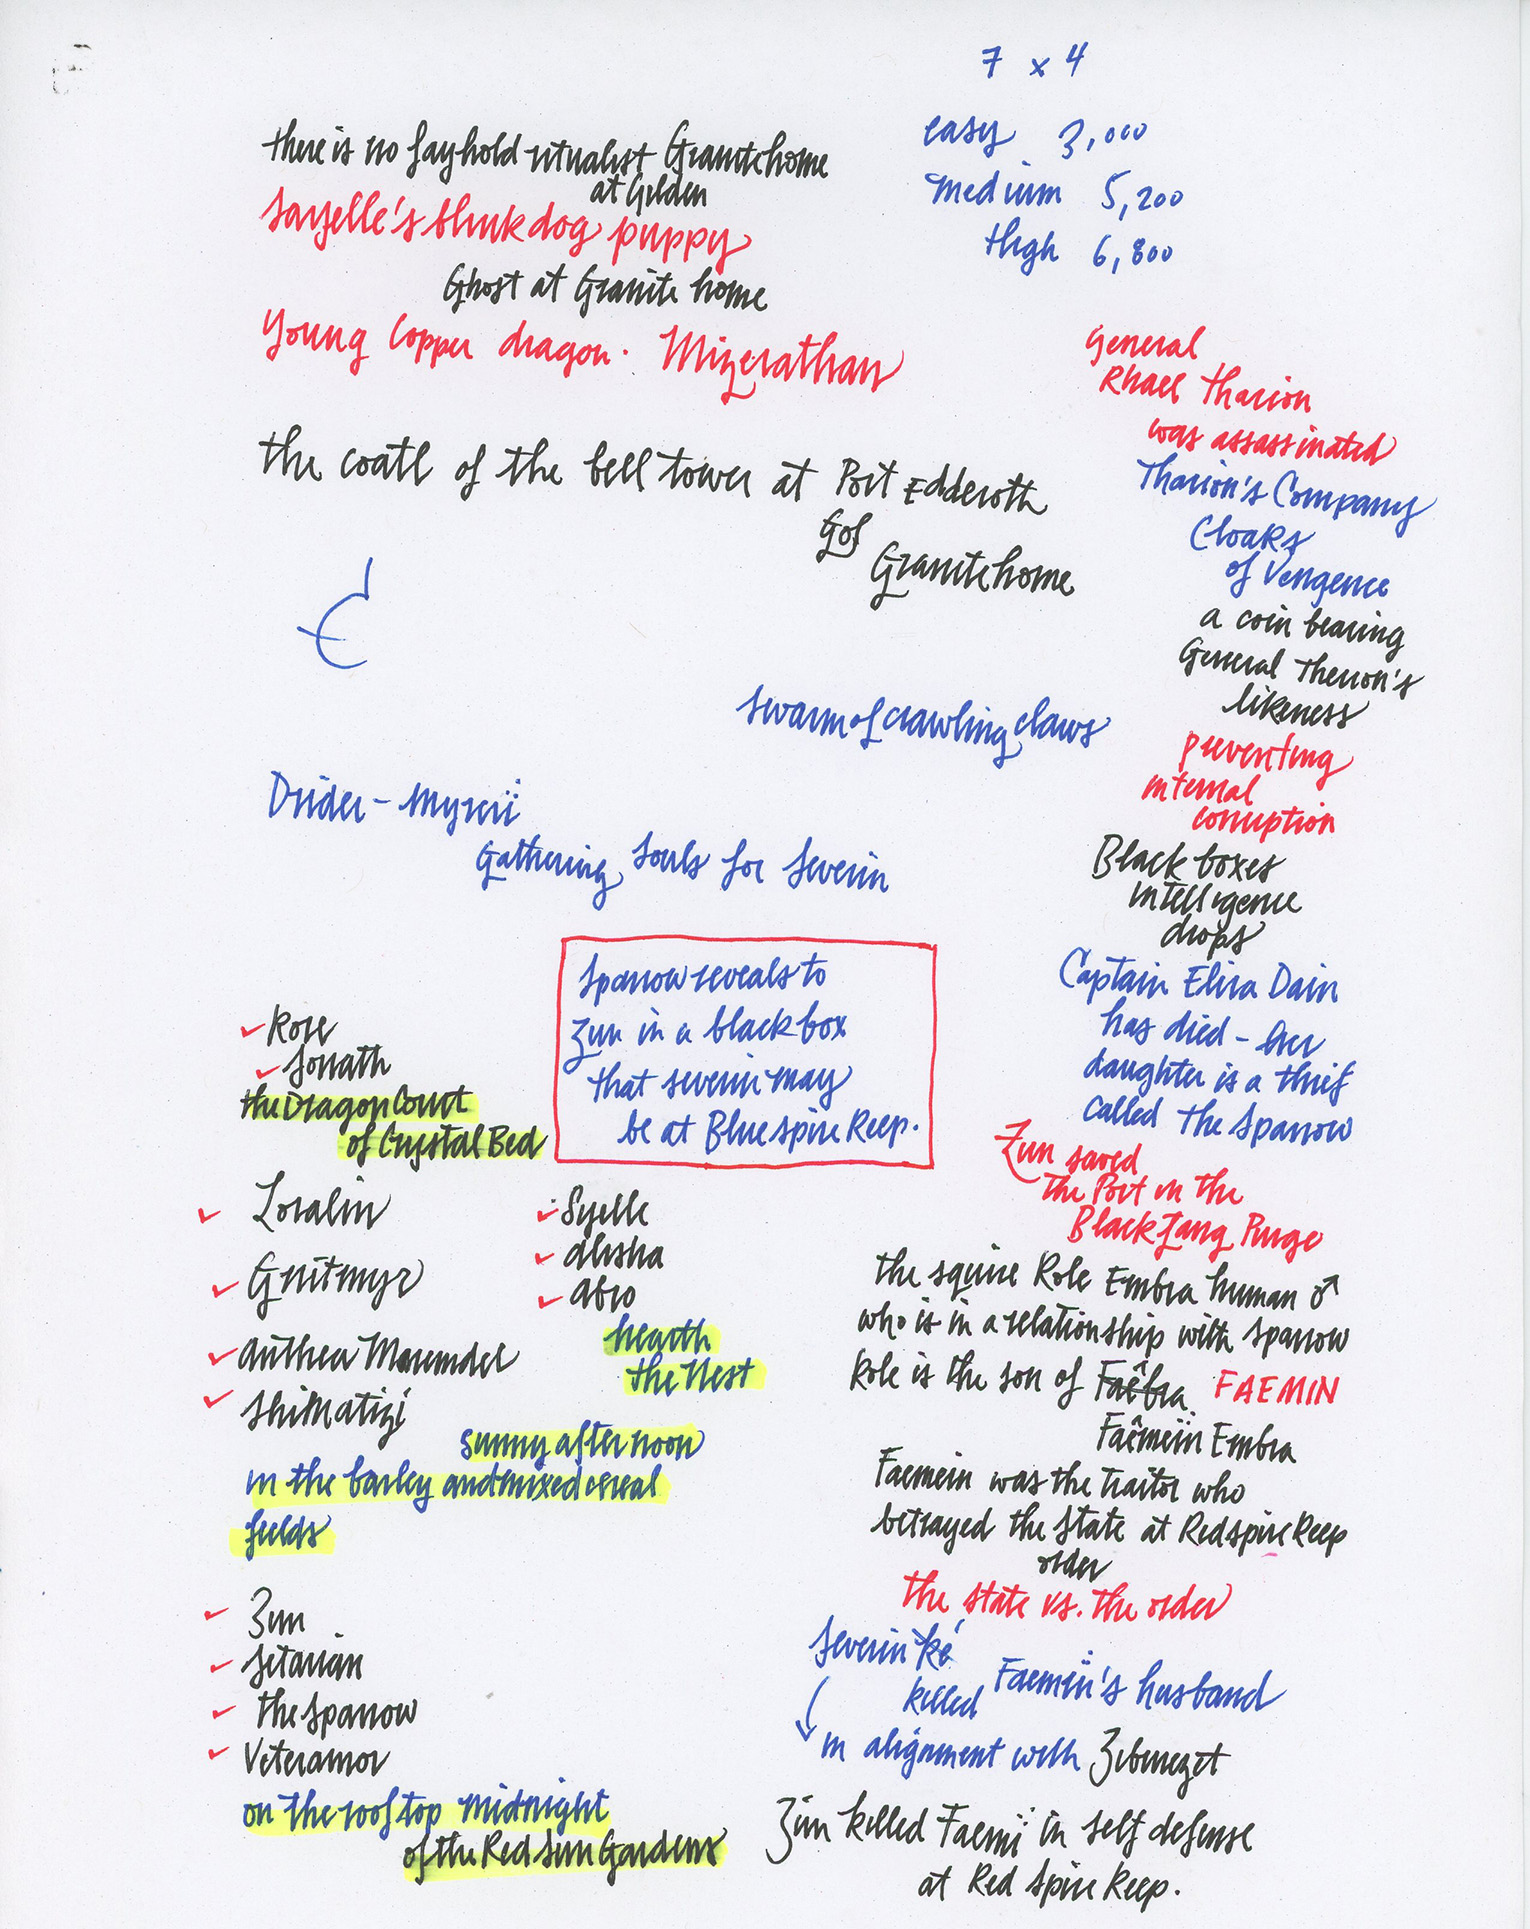 7 x 4
easy 3,000
medium 5,200
high 6,800
there is no fayhold ritualist Granitehome
at Gilden
Sayelle's blink dog puppy
Ghost at Granite home
Young Copper dragon. Mizerathan
the coatl of the bell tower at Port Edderoth
Gof
Granitehome
swarm of crawling claws
Drider - Myrrïï
Gathering souls for Severin
Sparrow reveals to
Zun in a black box
that Severin may
be at Blue spire Keep.
Rose
Sonath
the Dragon Court
of Crystal Bed
Loralin
Gnitmyr
Anthea
Shikatizi
Syelle
alisha
Abro
hearth
the Nest
sunny afternoon
in the barley and mixed cereal
fields
Zun
Setarian
the Sparrow
Veteramor
on the rooftop midnight
of the Red Sun Gardens
General
Rhael Tharion
was assassinated
Tharion's Company
Cloaks
of Vengence
a coin bearing
General Therion's
likeness
preventing
internal
corruption
Black boxes
intelligence
drops
Captain Elira Dain
has died - her
daughter is a thief
called the Sparrow
Zun saved
the Port in the
Blackfang Purge
the squire Role Embra human ♂
who is in a relationship with Sparrow
Role is the son of Faêbra FAEMIN
Faêmeïn Embra
Faemein was the traitor who
betrayed the State at Redspire Keep
order
the state vs. the order
Severin Ké
killed Faemïï's husband
in alignment with Zebenezet
Zun killed Faemïï in self defense
at Red Spire Keep.